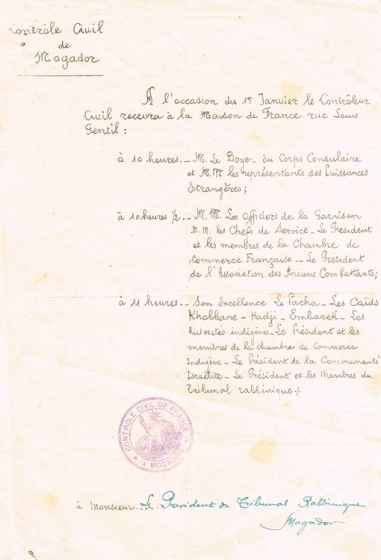 Contrôle Civil
de
Mogador
A l'occasion du 1er Janvier le Contrôleur
Civil recevra à la Maison de France rue Louis
Gentil :
à 10 heures. _ M. Le Doyen du Corps Consulaire
et M.M les représentants des Puissances
Etrangères;
à 10 heures 1/2. _ M. M. Les Officiers de la Garnison
M. M. les Chefs de Service _ Le Président
et les membres de la Chambre de
Commerce Française. _ Le Président
de l'Association des Anciens Combattants;
à 11 heures. _ Son Excellence Le Pacha _ Les Caïds
Khobbane _ Hadji _ Embarek _ Les
Autorités indigènes _ Le Président et les
membres de la chambre de Commerce
Indigène _ Le Président de la Communauté
Israélite _ Le Président et les Membres du
Tribunal rabbinique ./.
CONTRÔLE CIVIL DE FRANCE
MOGADOR
à Monsieur Le Président du Tribunal Rabbinique
Mogador